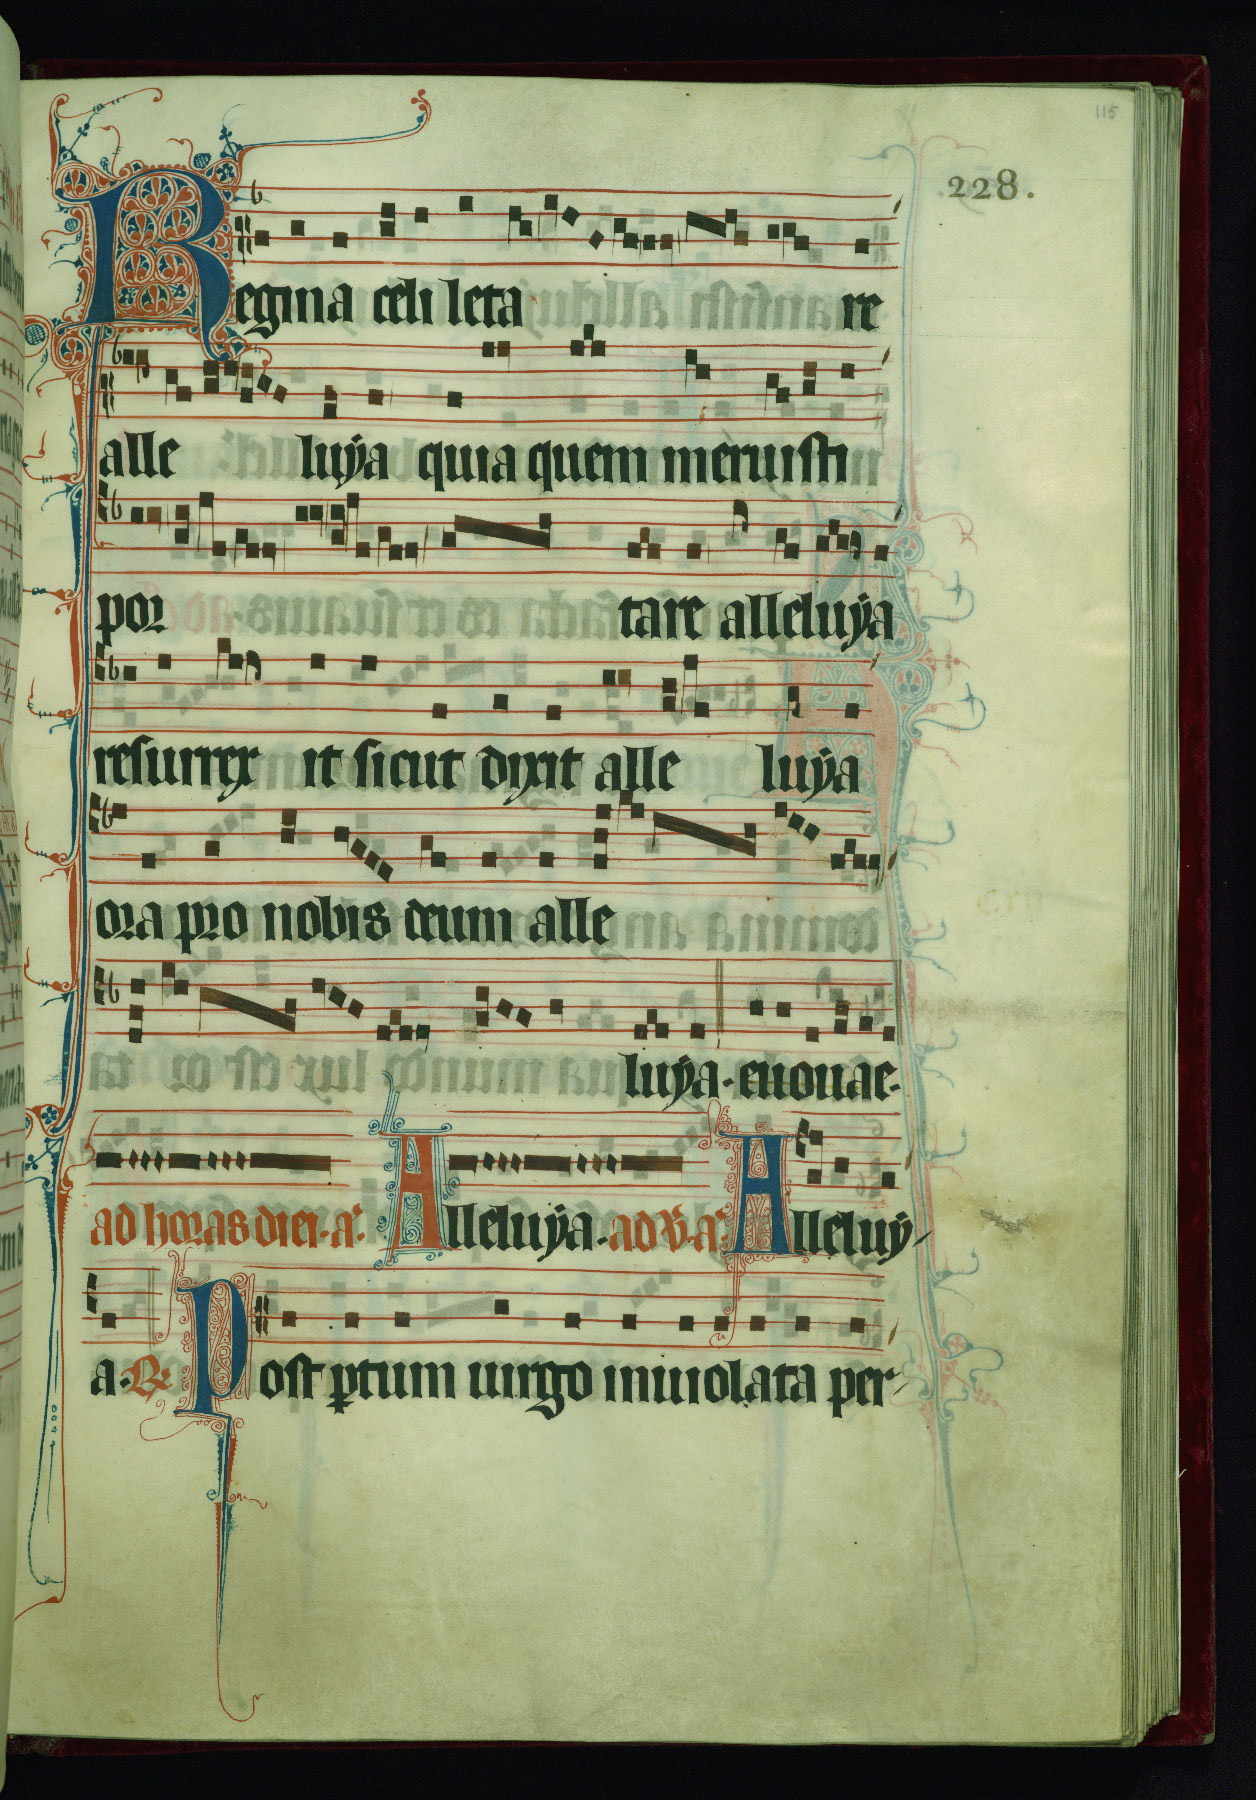 115
228.
Regina celi leta re
alle luÿa quia quem meruisti
por tare alleluÿa
resurrex it sicut dixit alle luÿa
ora pro nobis deum alle
luÿa · euouae ·
ad horas diei · a͛ · Alleluÿa · ad v̄ · a͛ · Alleluÿ
a · ℟ Post ꝑtum uirgo inuiolata per